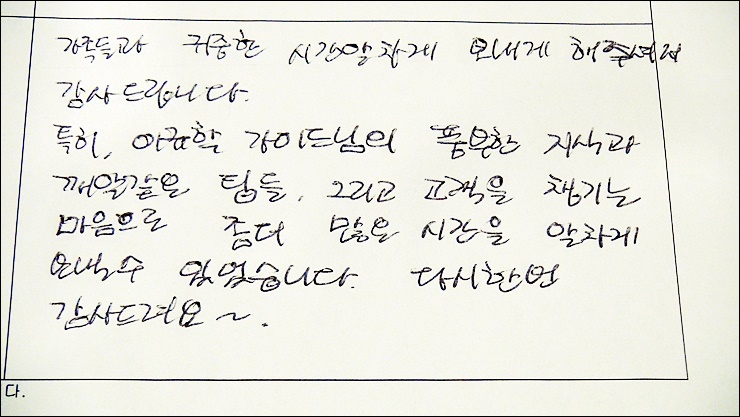 가족들과 귀중한 시간알차게 보내게 해주셔서
감사드립니다.
특히, 가이드님의 풍부한 지식과
깨알같은 팁들, 그리고 고객을 챙기는
마음으로 좀더 많은 시간을 알차게
보낼수 있었습니다. 다시한번
감사드려요~.
다.